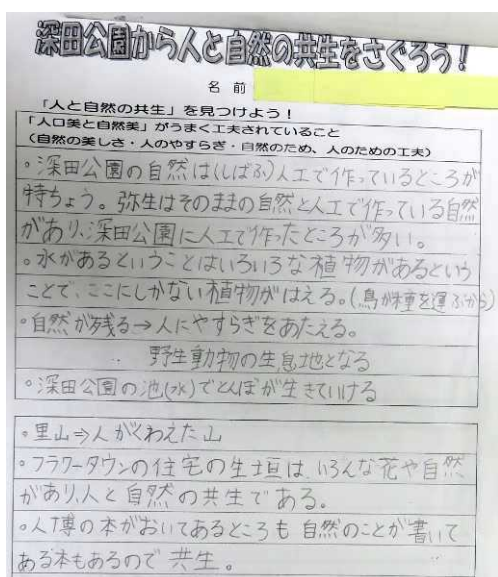 深田公園から人と自然の共生をさぐろう！
名前
「人と自然の共生」を見つけよう！
「人口美と自然美」がうまく工夫されていること
（自然の美しさ・人のやすらぎ・自然のため、人のための工夫）
・深田公園の自然は(しばふ)人工で作っているところが
特ちょう。弥生はそのままの自然と人工で作っている自然
があり、深田公園に人工で作ったところが多い。
・水があるということはいろいろな植物があるという
ことで、ここにしかない植物がはえる。(鳥が種を運ぶから)
・自然が残る→人にやすらぎをあたえる。
野生動物の生息地となる
・深田公園の池(水)でとんぼが生きていける
・里山⇒人がくわえた山
・フラワータウンの住宅の生垣は、いろんな花や自然
があり、人と自然の共生である。
・人博の本がおいてあるところも自然のことが書いて
ある本もあるので共生。